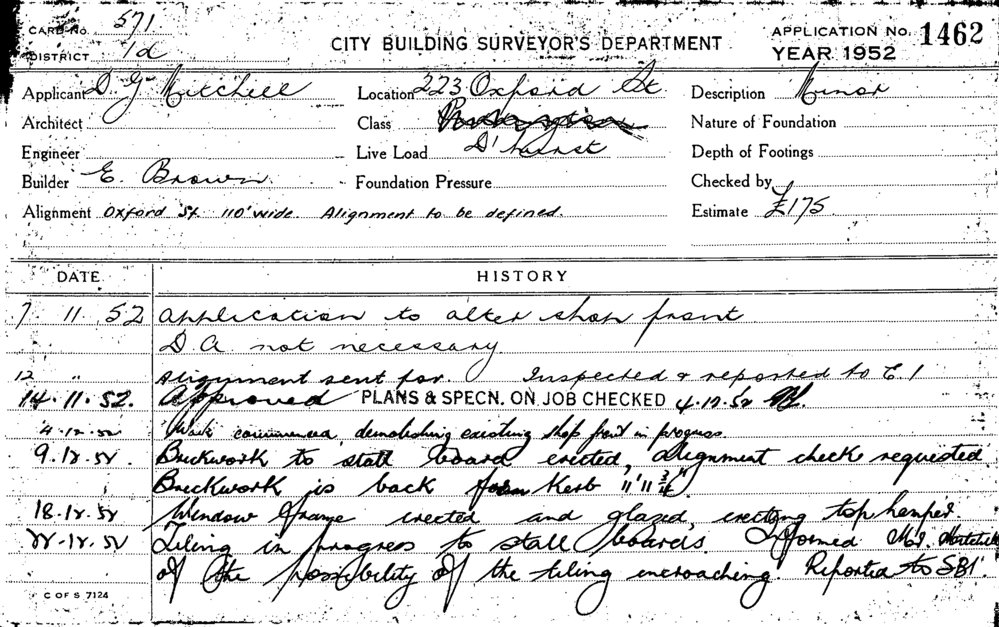 CARD No. 571
DISTRICT 1d
CITY BUILDING SURVEYOR'S DEPARTMENT
APPLICATION No. 1462
YEAR 1952
Applicant D. G. Mitchell
Location 223 Oxford St
Description Minor
Architect
Class
Nature of Foundation
Engineer
Live Load D'hurst
Depth of Footings
Builder E. Brown
Foundation Pressure
Checked by
Alignment Oxford St. 110' wide. Alignment to be defined.
Estimate £175
DATE HISTORY
7 11 52 Application to alter shop front
D.A. not necessary
12 " Alignment sent for. Inspected & reported to E.1
14.11.52. Approved PLANS & SPECN. ON JOB CHECKED 4.12.52
4.12.52 Work commenced, demolishing existing shop front in progress.
9.12.52. Brickwork to stall board erected, alignment check requested
Brickwork is back from Kerb 11' 11 3/4"
18.12.52 Window frame erected and glazed, erecting top hamper.
22.12.52 Tiling in progress to stall boards. Informed Mr.
of the possibility of the tiling encroaching. Reported to SBI.
C OF S 7124